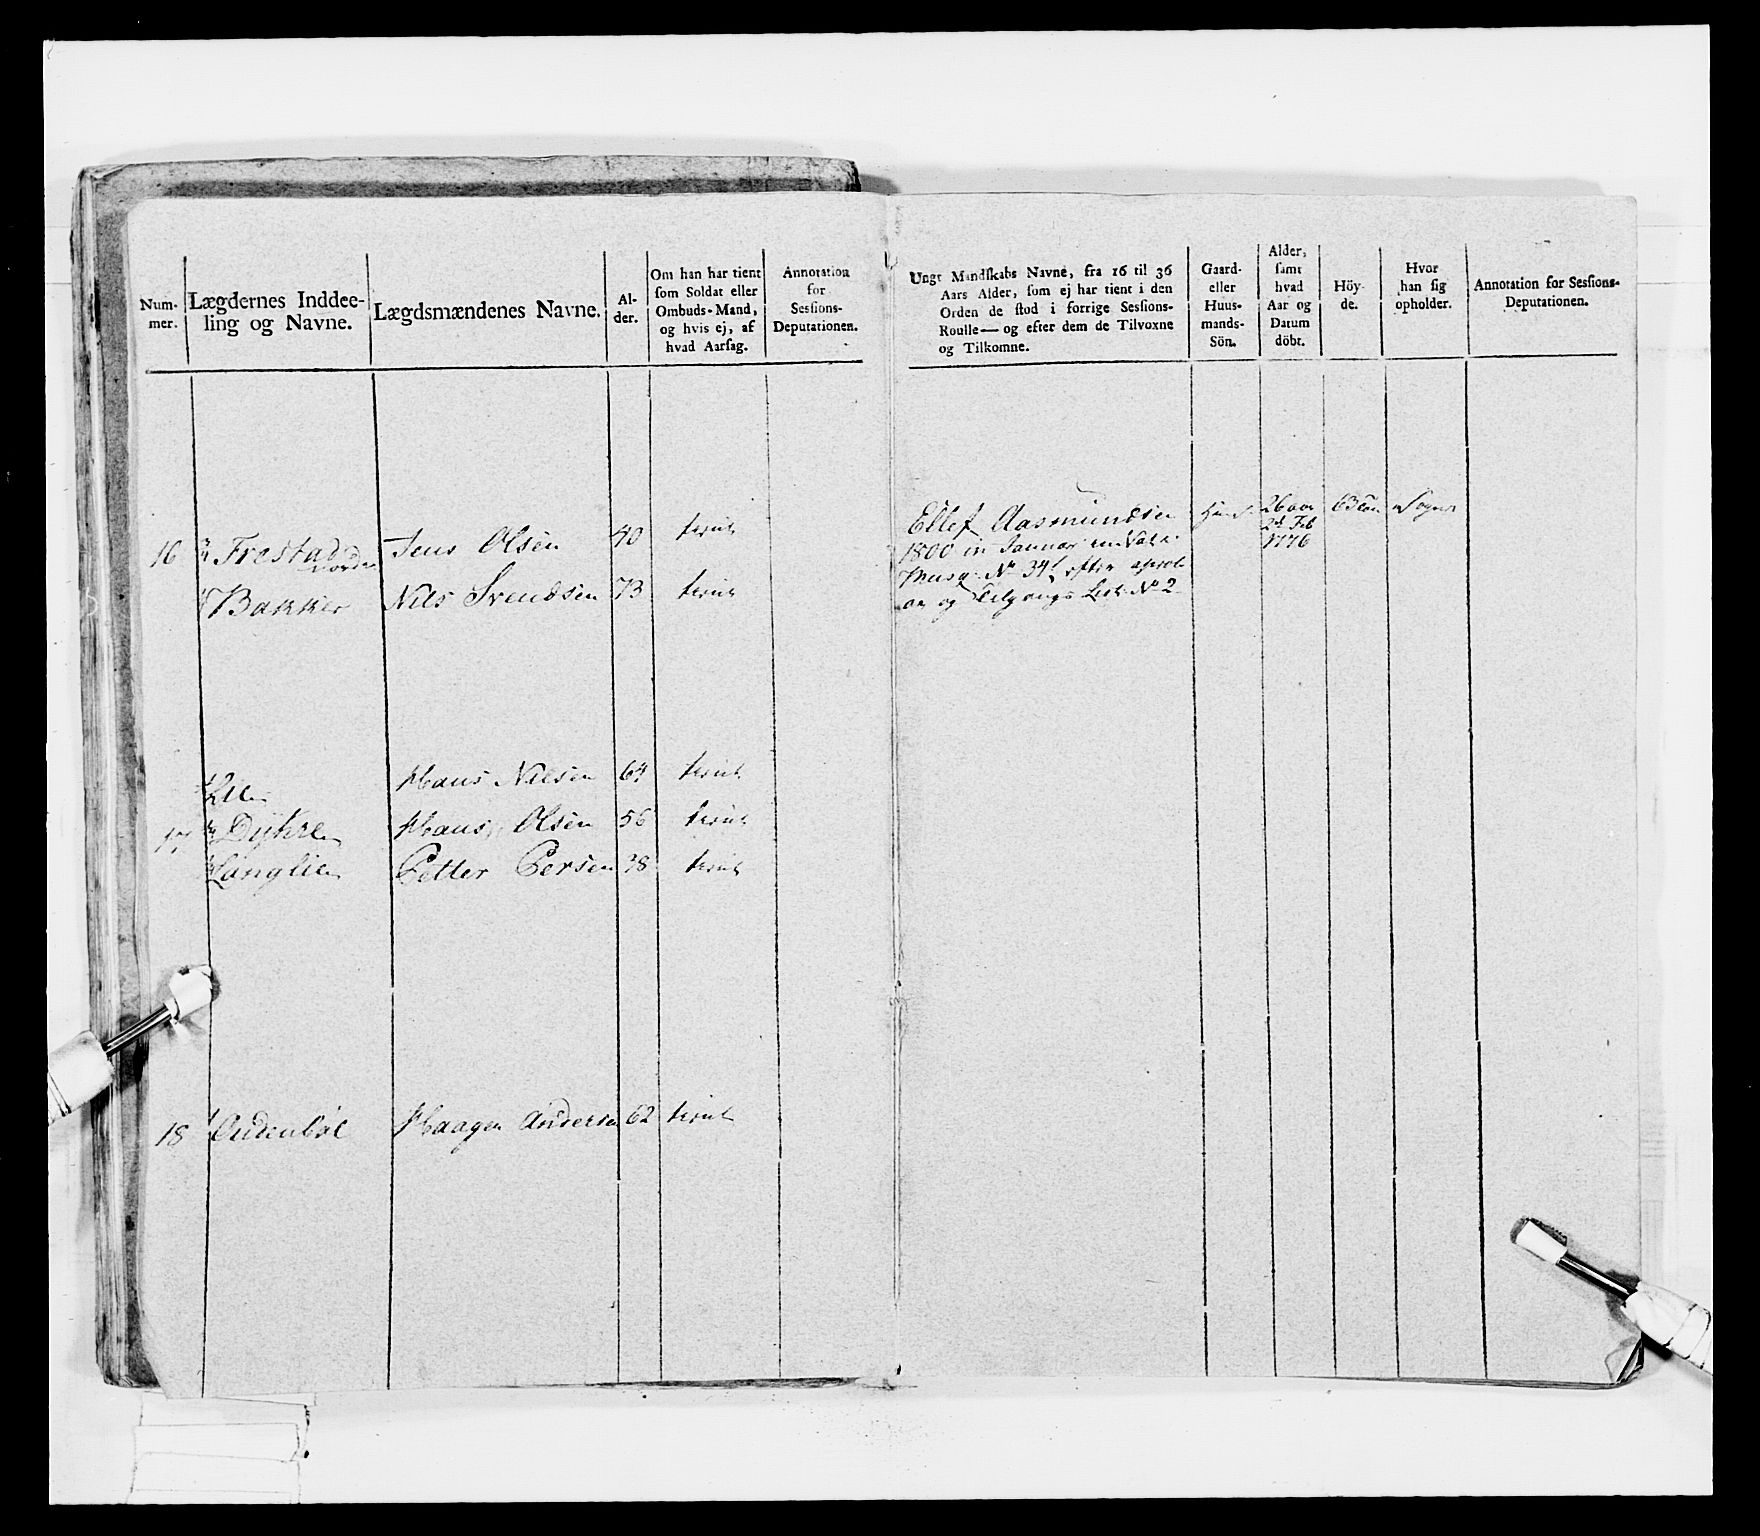 Num-
mer.
Lægdernes Inddee-
ling og Navne.
Lægdsmændenes Navne.
Al-
der.
Om han har tient
som Soldat eller
Ombuds-Mand,
og hvis ej, af
hvad Aarsag.
Annotation
for
Sessions-
Deputationen.
16 Frestad Jens Olsen 40 tient
Bakker Nils Svendsen 73 tient
Lille Hans Nilsen 64 tient
17 Dyhre Hans Olsen 56 tient
Langlie Petter Persen 38 tient
18 Audenbøl Haagen Andersen 62 tient
Ungt Mandskabs Navne, fra 16 til 36
Aars Alder, som ej har tient i den
Orden de stod i forrige Sessions-
Roulle— og efter dem de Tilvoxne
og Tilkomne.
Gaard-
eller
Huus-
mands-
Sön.
Alder,
samt
hvad
Aar og
Datum
döbt.
Höy-
de.
Hvor
han sig
opholder.
Annotation for Sessions-
Deputationen.
Ellef Aasmundsen 26 aar Sognet
1800 in Januar
Musq: No 34 efter
og Tilgangs List: No 2
Feb
1776